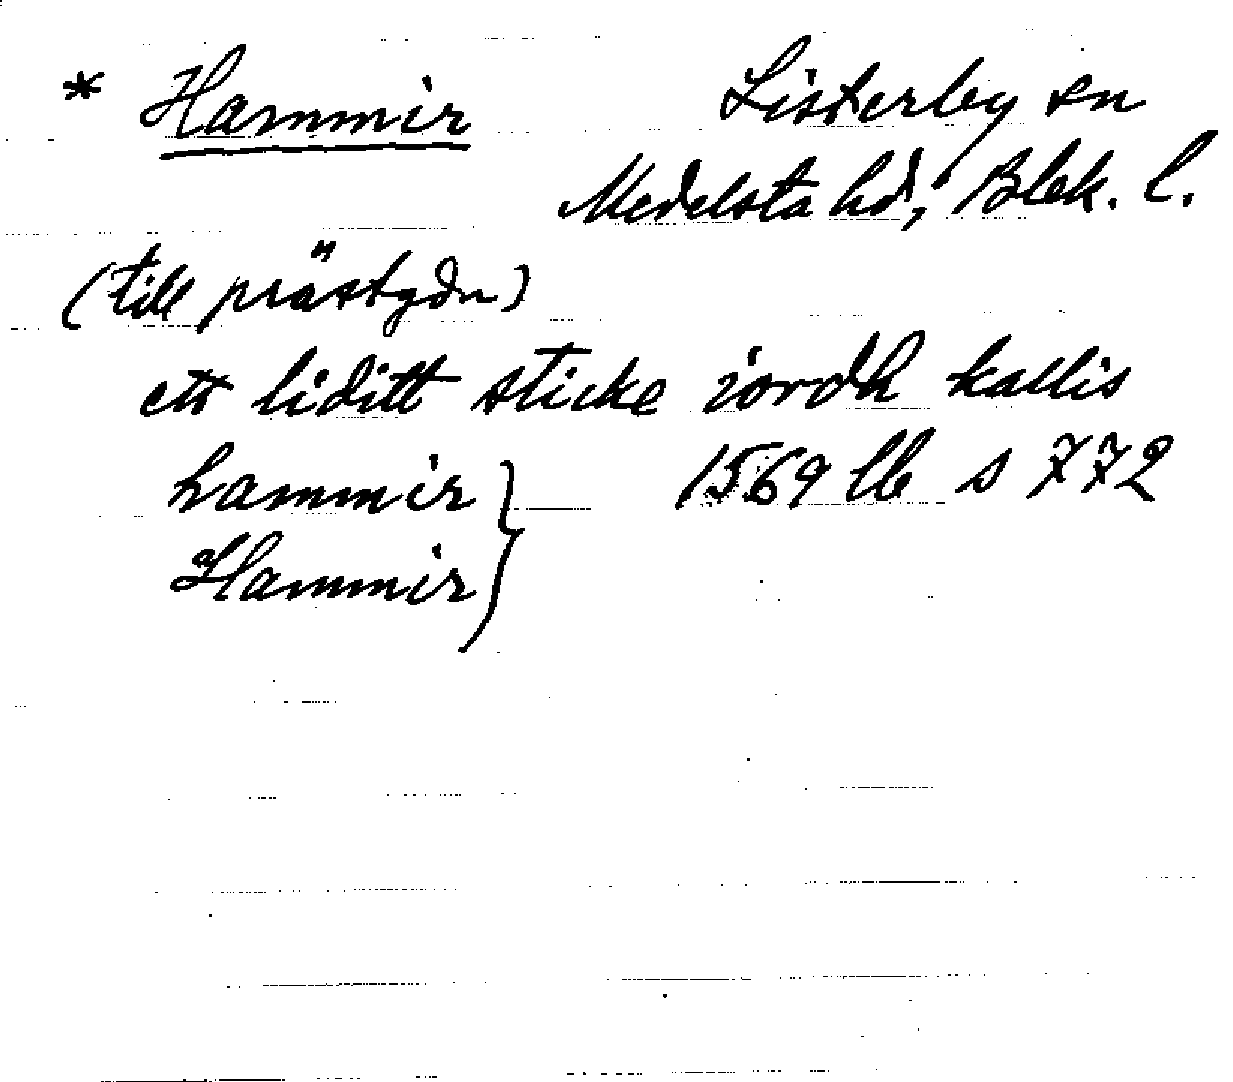 * Hammir Listerby sn
Medelsta hd, Blek. l.
(till prästgdn)
ett liditt sticke iordh kallis
hammir } 1569 lb s 772
Hammir